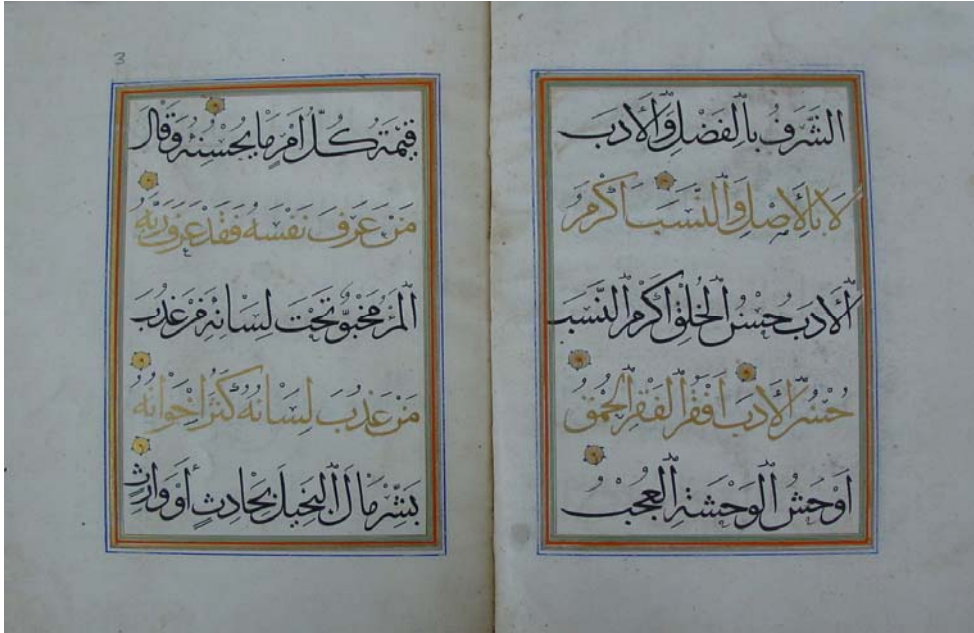 الشَّرَفُ بِالْفَضْلِ وَالْأَدَبِ
لَا بِالْأَصْلِ وَالنَّسَبِ اَكْرَمُ
الْأَدَبِ حُسْنُ الْخُلْقِ اَكْرَمُ النَّسَبِ
حُسْنُ الْأَدَبِ اَفْقَرُ الْفَقْرِ الْحُمْقُ
اَوْحَشُ الْوَحْشَةِ الْعُجْبُ
3
قِيْمَةُ كُلِّ اَمْرٍ مَا يُحْسِنُهُ وَقَالَ
مَنْ عَرَفَ نَفْسَهُ فَقَدْ عَرَفَ رَبَّهُ
الْمَرُ مَخْبُوٌّ تَحْتَ لِسَانِهِ مَنْ عَذُبَ
مَنْ عَذُبَ لِسَانُهُ كَثُرَ اِخْوَانُهُ
بَشِّرْ مَالَ الْبَخِيلِ بِحَادِثٍ أَوْ وَارِثٍ